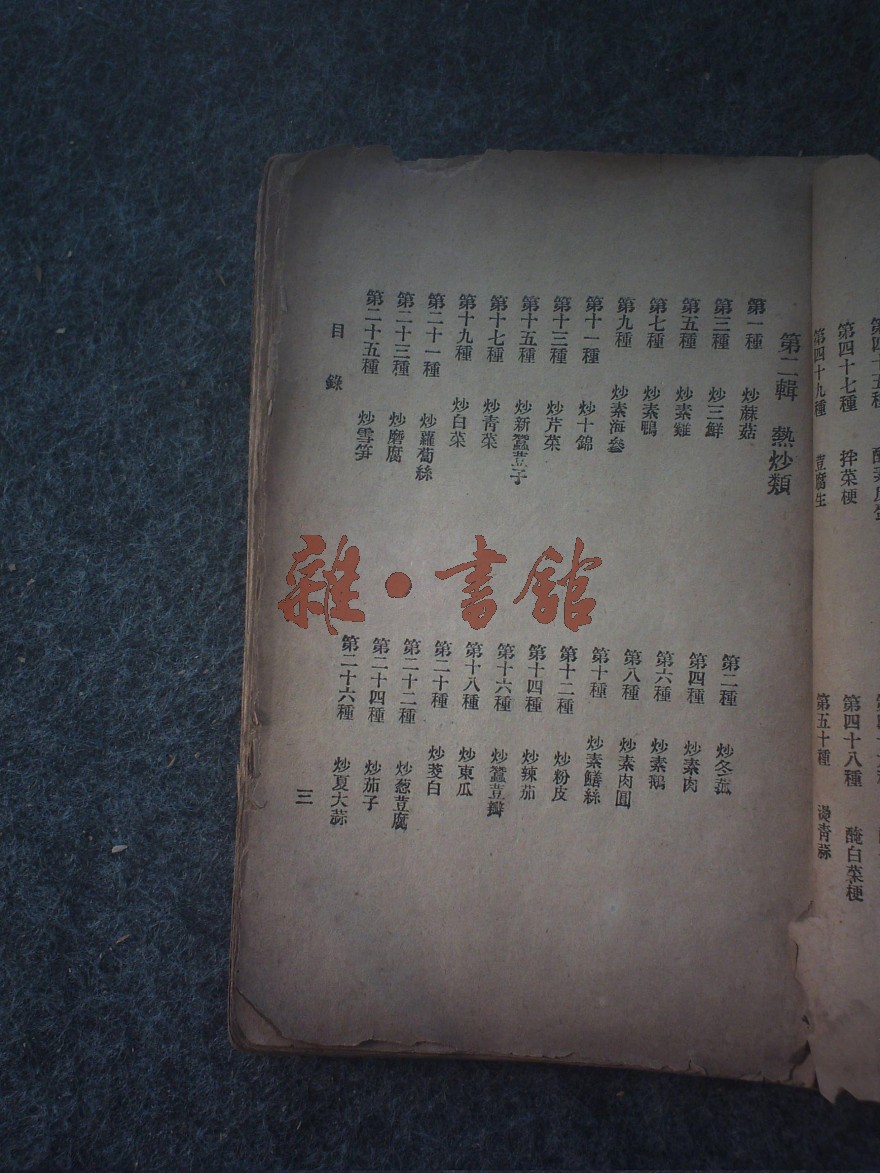 第四十七種　拌菜梗
第四十八種　醃白菜梗
第四十九種　荳腐生
第五十種　燙青蒜
第二輯　熱炒類
第一種　炒蔴菇
第二種　炒冬菰
第三種　炒三鮮
第四種　炒素肉
第五種　炒素雞
第六種　炒素鵝
第七種　炒素鴨
第八種　炒素肉圓
第九種　炒素海參
第十種　炒素鱔絲
第十一種　炒十錦
第十二種　炒粉皮
第十三種　炒芹菜
第十四種　炒辣茄
第十五種　炒新蠶荳子
第十六種　炒蠶荳瓣
第十七種　炒青菜
第十八種　炒東瓜
第十九種　炒白菜
第二十種　炒茭白
第二十一種　炒蘿蔔絲
第二十二種　炒葱荳腐
第二十三種　炒磨腐
第二十四種　炒茄子
第二十五種　炒雪笋
第二十六種　炒夏大蒜
目錄
三
雜·書館